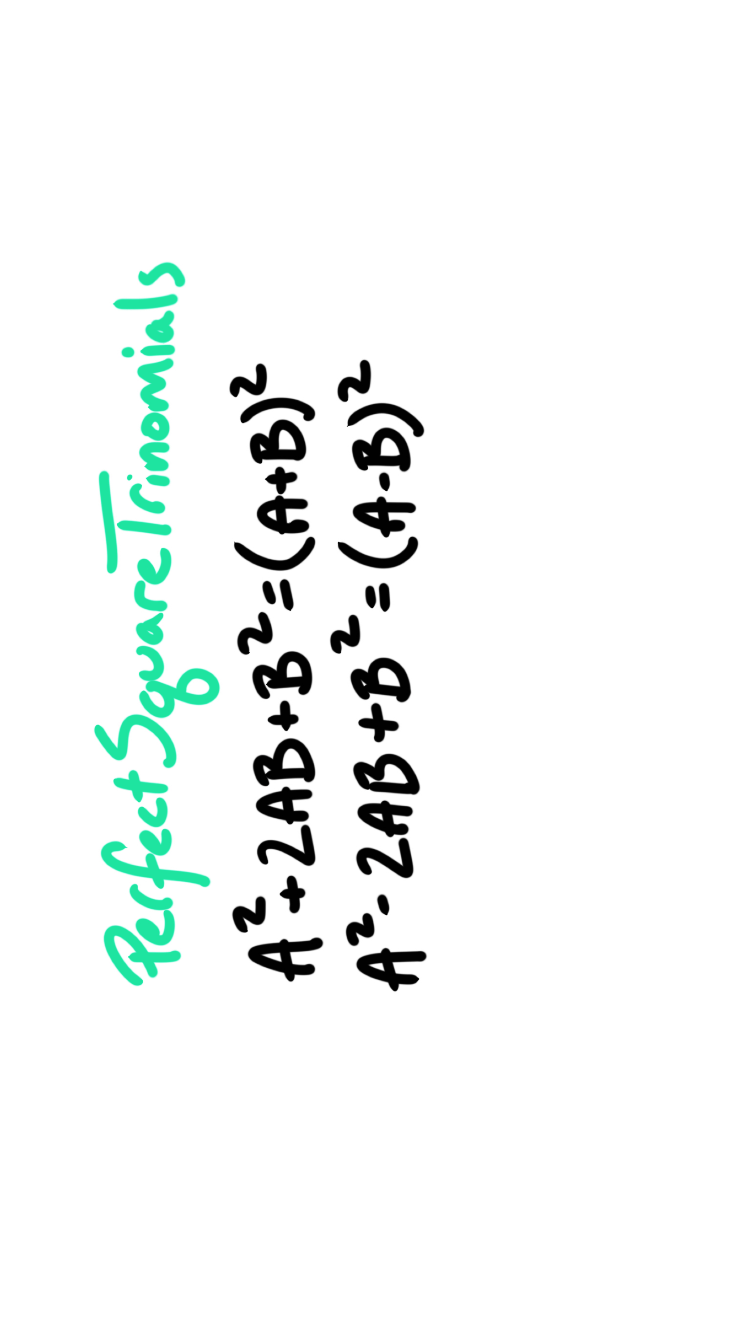 Perfect Square Trinomials
A²+2AB+B²=(A+B)²
A²-2AB+B²=(A-B)²